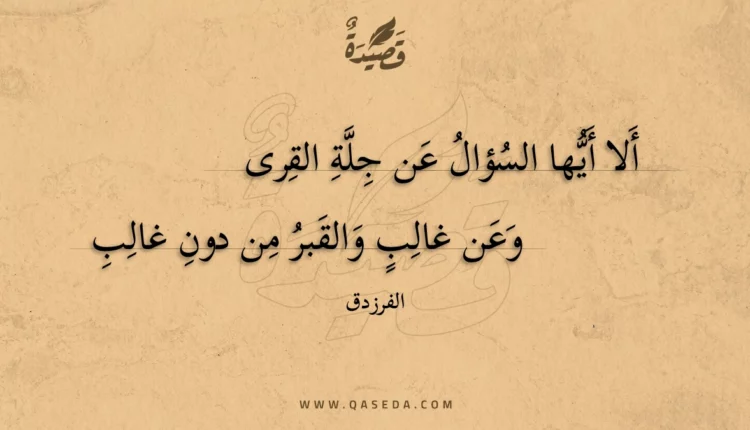 قَصِيدَةٌ
أَلا أَيُّها السُؤالُ عَن جِلَّةِ القِرى
وَعَن غالِبٍ وَالقَبرُ مِن دونِ غالِبِ
الفرزدق
WWW.QASEDA.COM